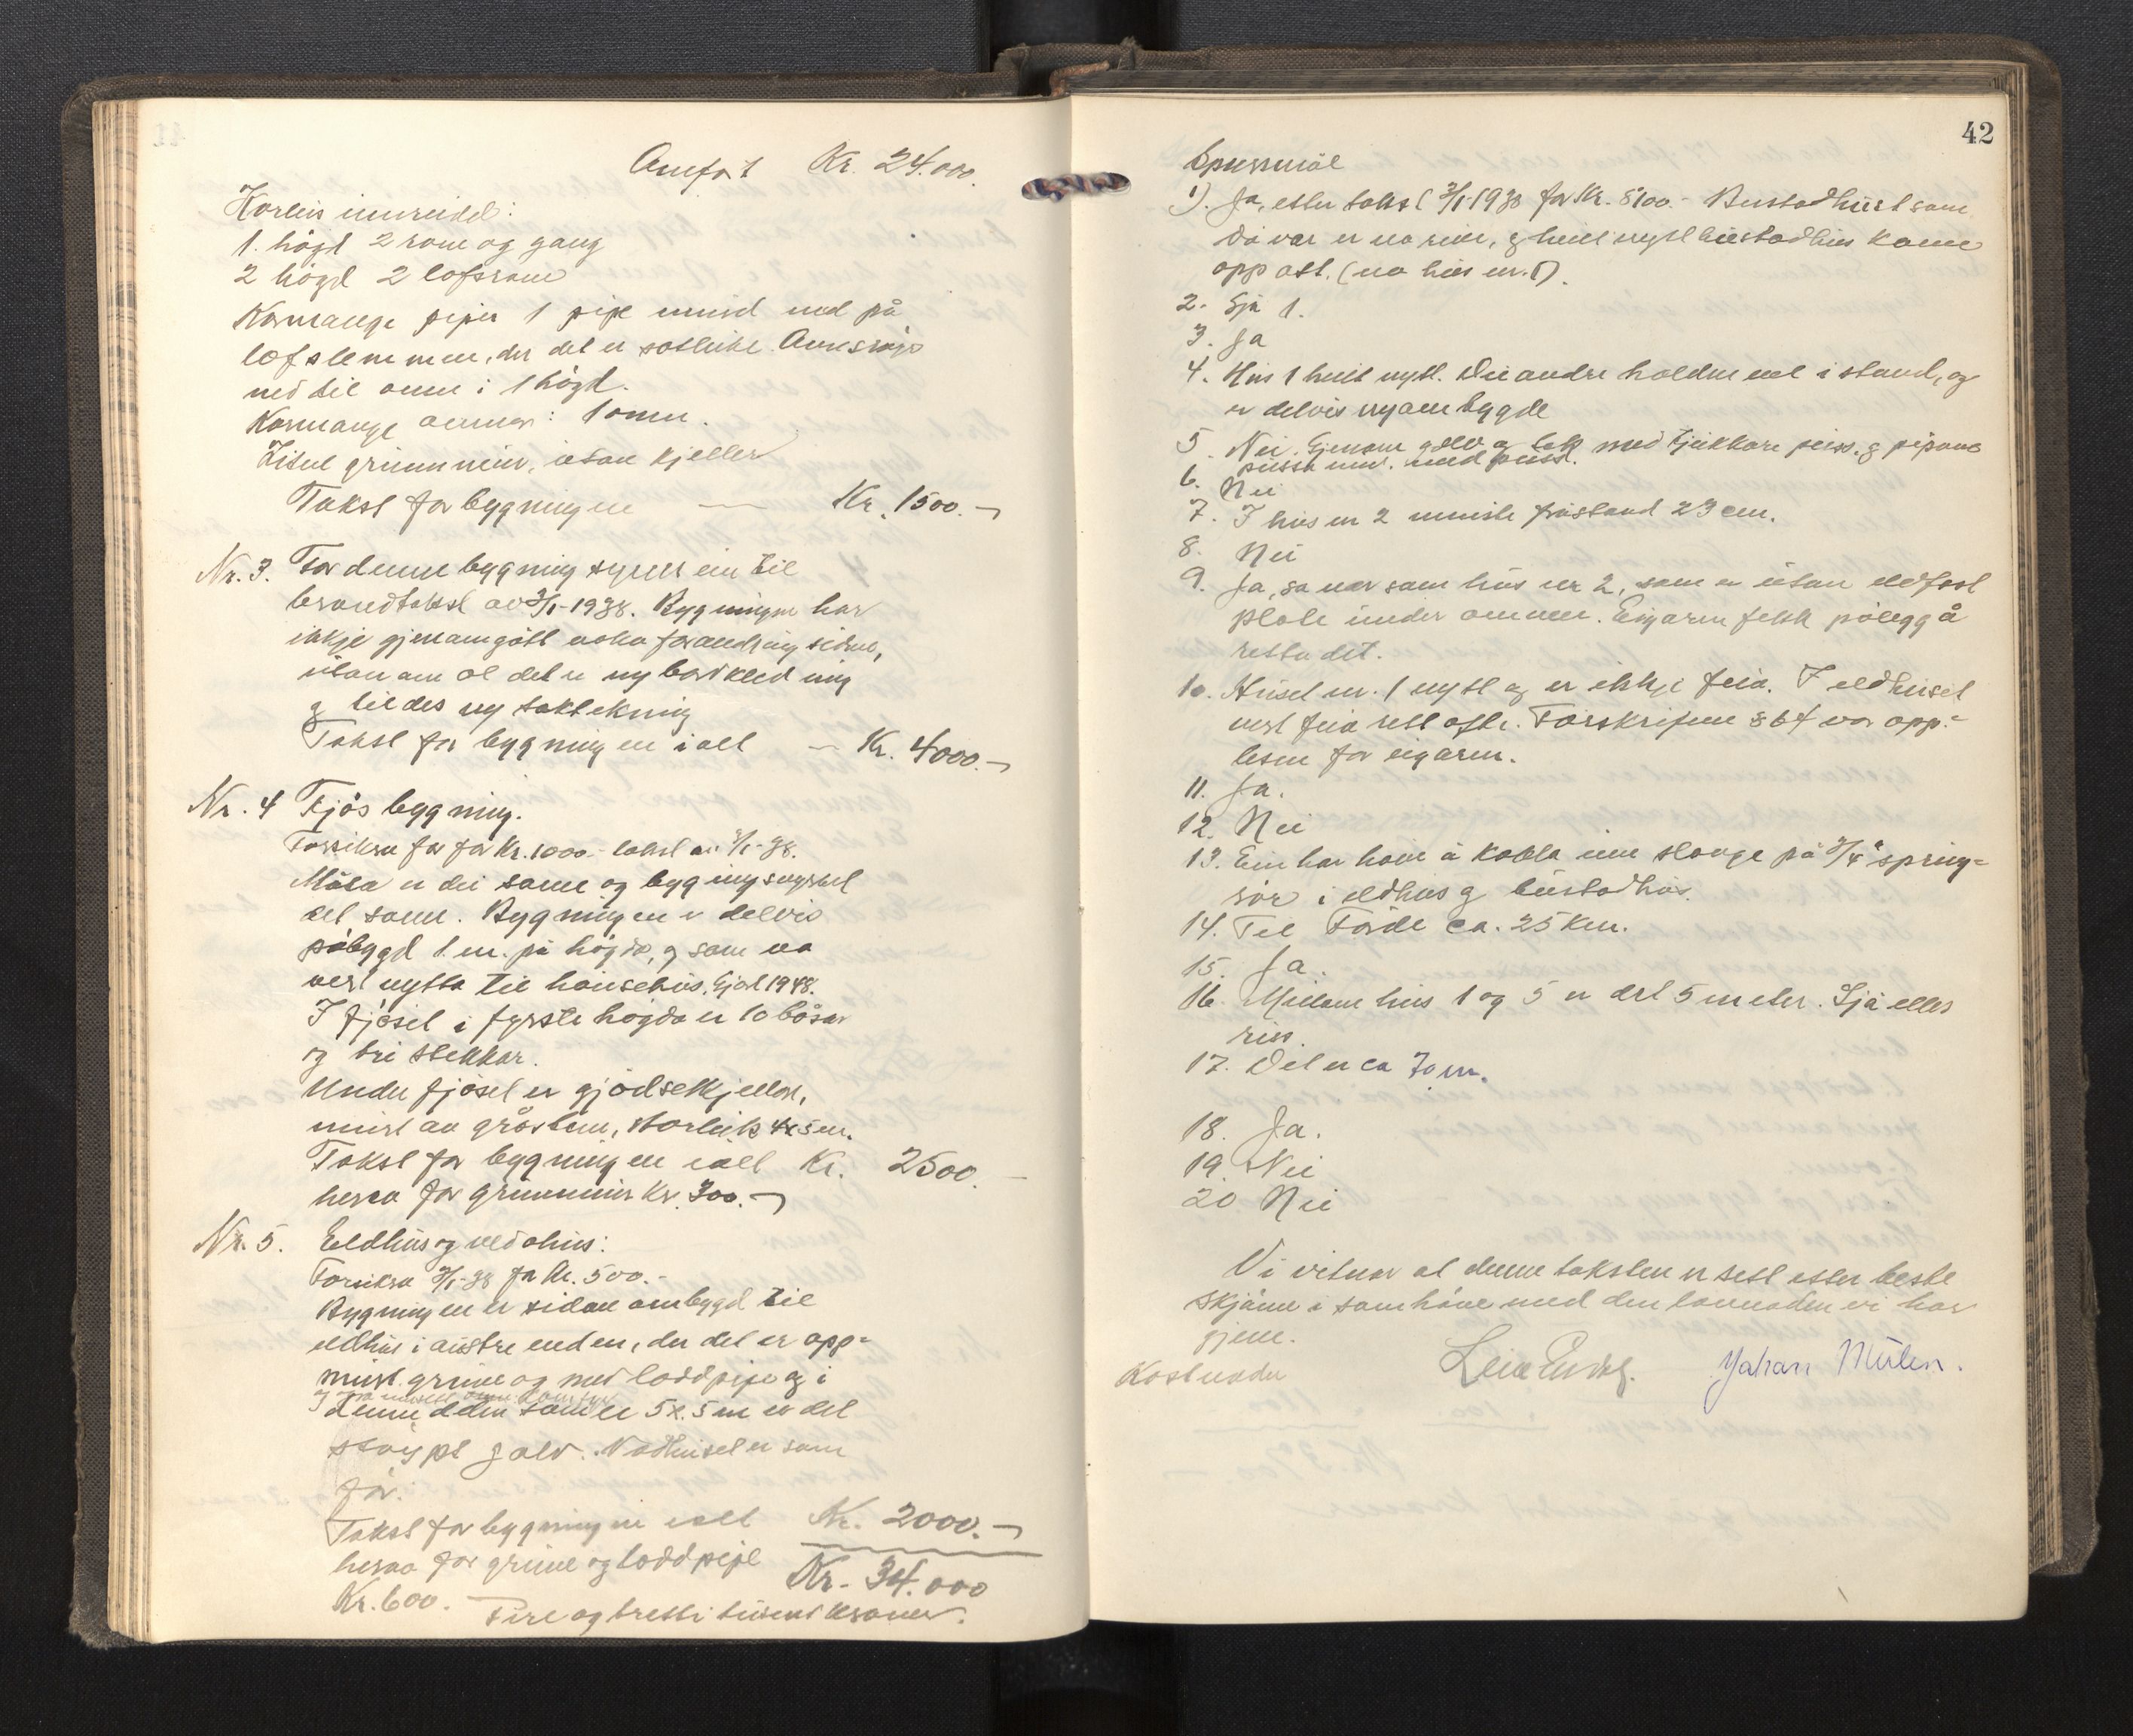 Amfört Kr. 24.000.
Korleis innreidd:
1. högd 2 rom og gang
2 högd 2 loftsrom
Kormange piper 1 pipe murd ned på
loftslemmen, der det er sotluke. Omnsrøyr
ned til omn i 1 högd.
Kormange omnar: 1 omn.
Liten grunnmur, utan kjellar
Takst for bygningen — Kr. 1500.-
Nr. 3. For denne bygning syner ein til
brandtakst av 3/1-1938. Bygningen har
ikkje gjenomgått noko forandring sidan,
utan om at det er ny bordkledning
og tildes ny taktekning
Takst for bygningen i alt — Kr. 4000.-
Nr. 4 Fjös bygning.
Forsikra för for Kr. 1000.- takst av 3/1-38.
Måla er dei same og bygningsmåten
det same. Bygningen er delvis
påbygd 1 m. på högda, og som no
vert nytta til hönsehus. Gjort 1948.
I fjöset i fyrste högda er 10 båsar
og tri stekkar.
Under fjöset er gjödselkjellar,
murt av gråstein, storleik 4x5 m.
Takst for bygningen i alt Kr. 2500.-
herav for grunnmur Kr. 300.-
Nr. 5. Eldhus og vedahus:
Forsikra 3/1-38 for Kr. 500.-
Bygningen er sidan ombygd til
eldhus i austre enden, der det er opp-
murt grue og med loddpipe og i
Denne delen som er 5 x 5 m er det
støypt golv. Vedhuset er som
för.
Takst for bygningen i alt Kr. 2000.-
herav for grue og loddpipe Kr. 34.000
Kr. 600. Fire og tretti tusend kroner.
42
Spursmål
1). Ja, etter takst 3/1-1938 for Kr. 8100.- Bustadhuset som
då var er no rive, og heilt nytt bustadhus kome
opp att. (no hus nr. 1).
2. Sjå 1.
3. Ja
4. Hus 1 heilt nytt. Dei andre haldne vel i stand, og
er delvis nyombygde
5. Nei. Gjenom golv og tak med tjukkare puss. og pipone
pussa med puss.
6. Nei
7. I hus nr 2 minste fråstand 23 cm.
8. Nei
9. Ja, so nær som hus nr 2, som er utan eldfast
plate under omnen. Eigaren fekk pålegg å
retta det.
10. Huset nr. 1 nytt og er ikkje feia. I eldhuset
vert feia rett ofte. Forskriftene § 64 var opp-
lesne for eigaren.
11. Ja.
12. Nei
13. Ein har höve å kobla inn slange på 3/4" spring-
rör i eldhus og bustadhus.
14. Til Förde ca. 25 km.
15. Ja.
16. Millom hus 1 og 5 er det 5 meter. Sjå elles
riss.
17. Det er ca 70 m.
18. Ja.
19. Nei
20 Nei
Vi vitnar at denne taksten er sett etter beste
skjöne i samhöve med den lovnaden vi har
gjeve.
Kostnader Johan Mulen.